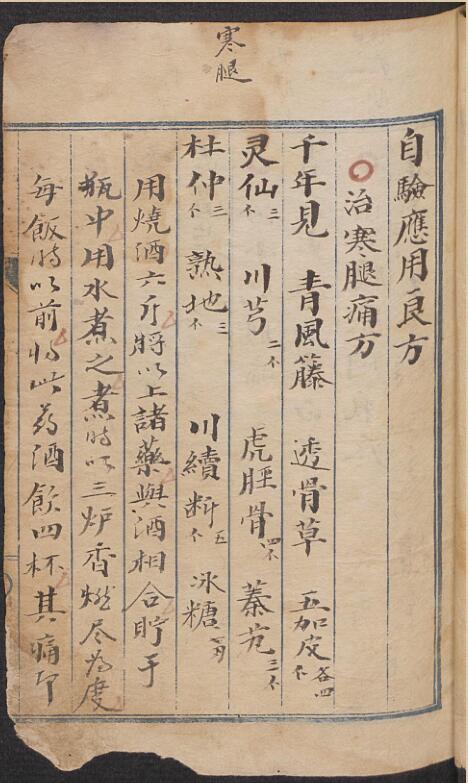 寒腿
自驗應用良方
治寒腿痛方
千年見 青風籐 透骨草 五加皮各四个
灵仙三个 川芎二个 虎脛骨四个 蓁艽三个
杜仲三个 熟地三个 川續断五个 冰糖
用燒酒六斤將以上諸藥與酒相合貯于
瓶中用水煮之煮時以三炉香燃尽為度
每飯時以前將此药酒飲四杯其痛即